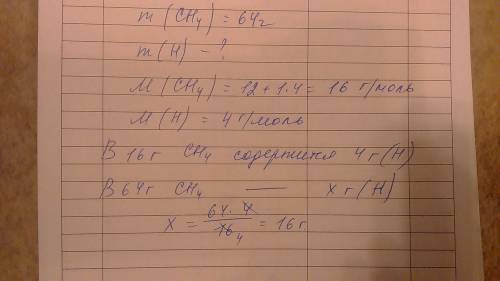 m (CH₄) = 64г
m (H) - ?
M (CH₄) = 12 + 1·4 = 16 г/моль
M (H) = 4 г/моль
В 16 г CH₄ содержится 4 г (H)
В 64 г CH₄ — x г (H)
x = 64·4/16 4 = 16 г